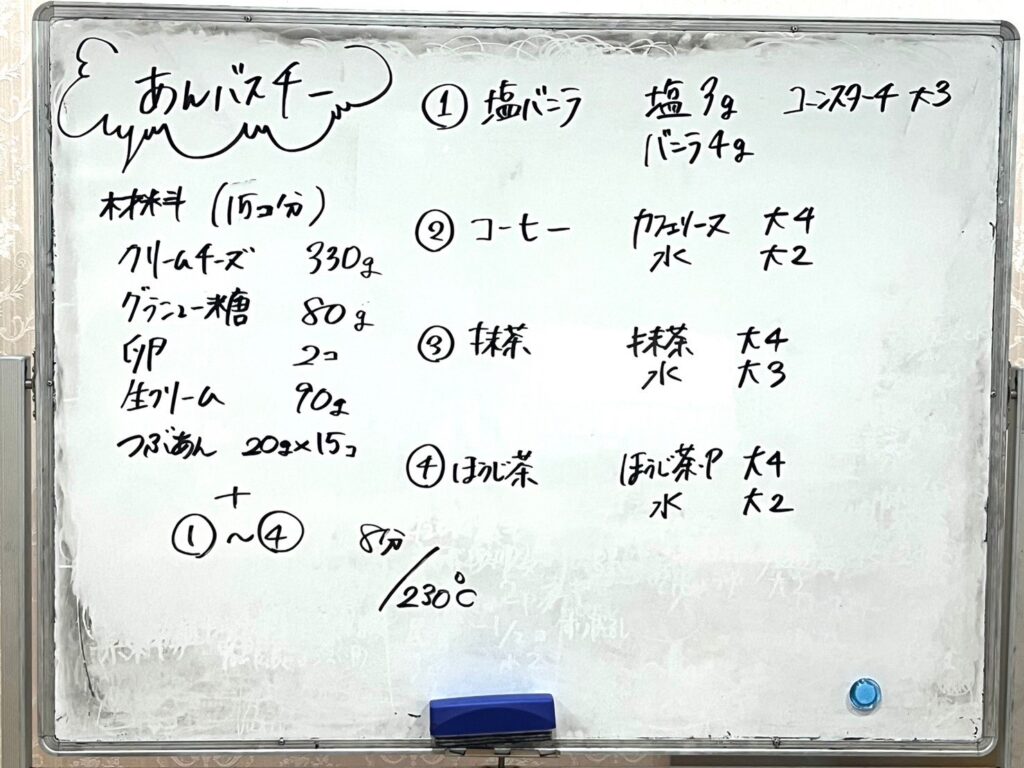 あんバスチー
材料 (15コ分)
クリームチーズ 330g
グラニュー糖 80g
卵 2コ
生クリーム 90g
つぶあん 20g×15コ
+
①～④ 8分/230℃
① 塩バニラ 塩 3g コーンスターチ 大3
バニラ 4g
② コーヒー カフェリーヌ 大4
水 大2
③ 抹茶 抹茶 大4
水 大3
④ ほうじ茶 ほうじ茶・P 大4
水 大2